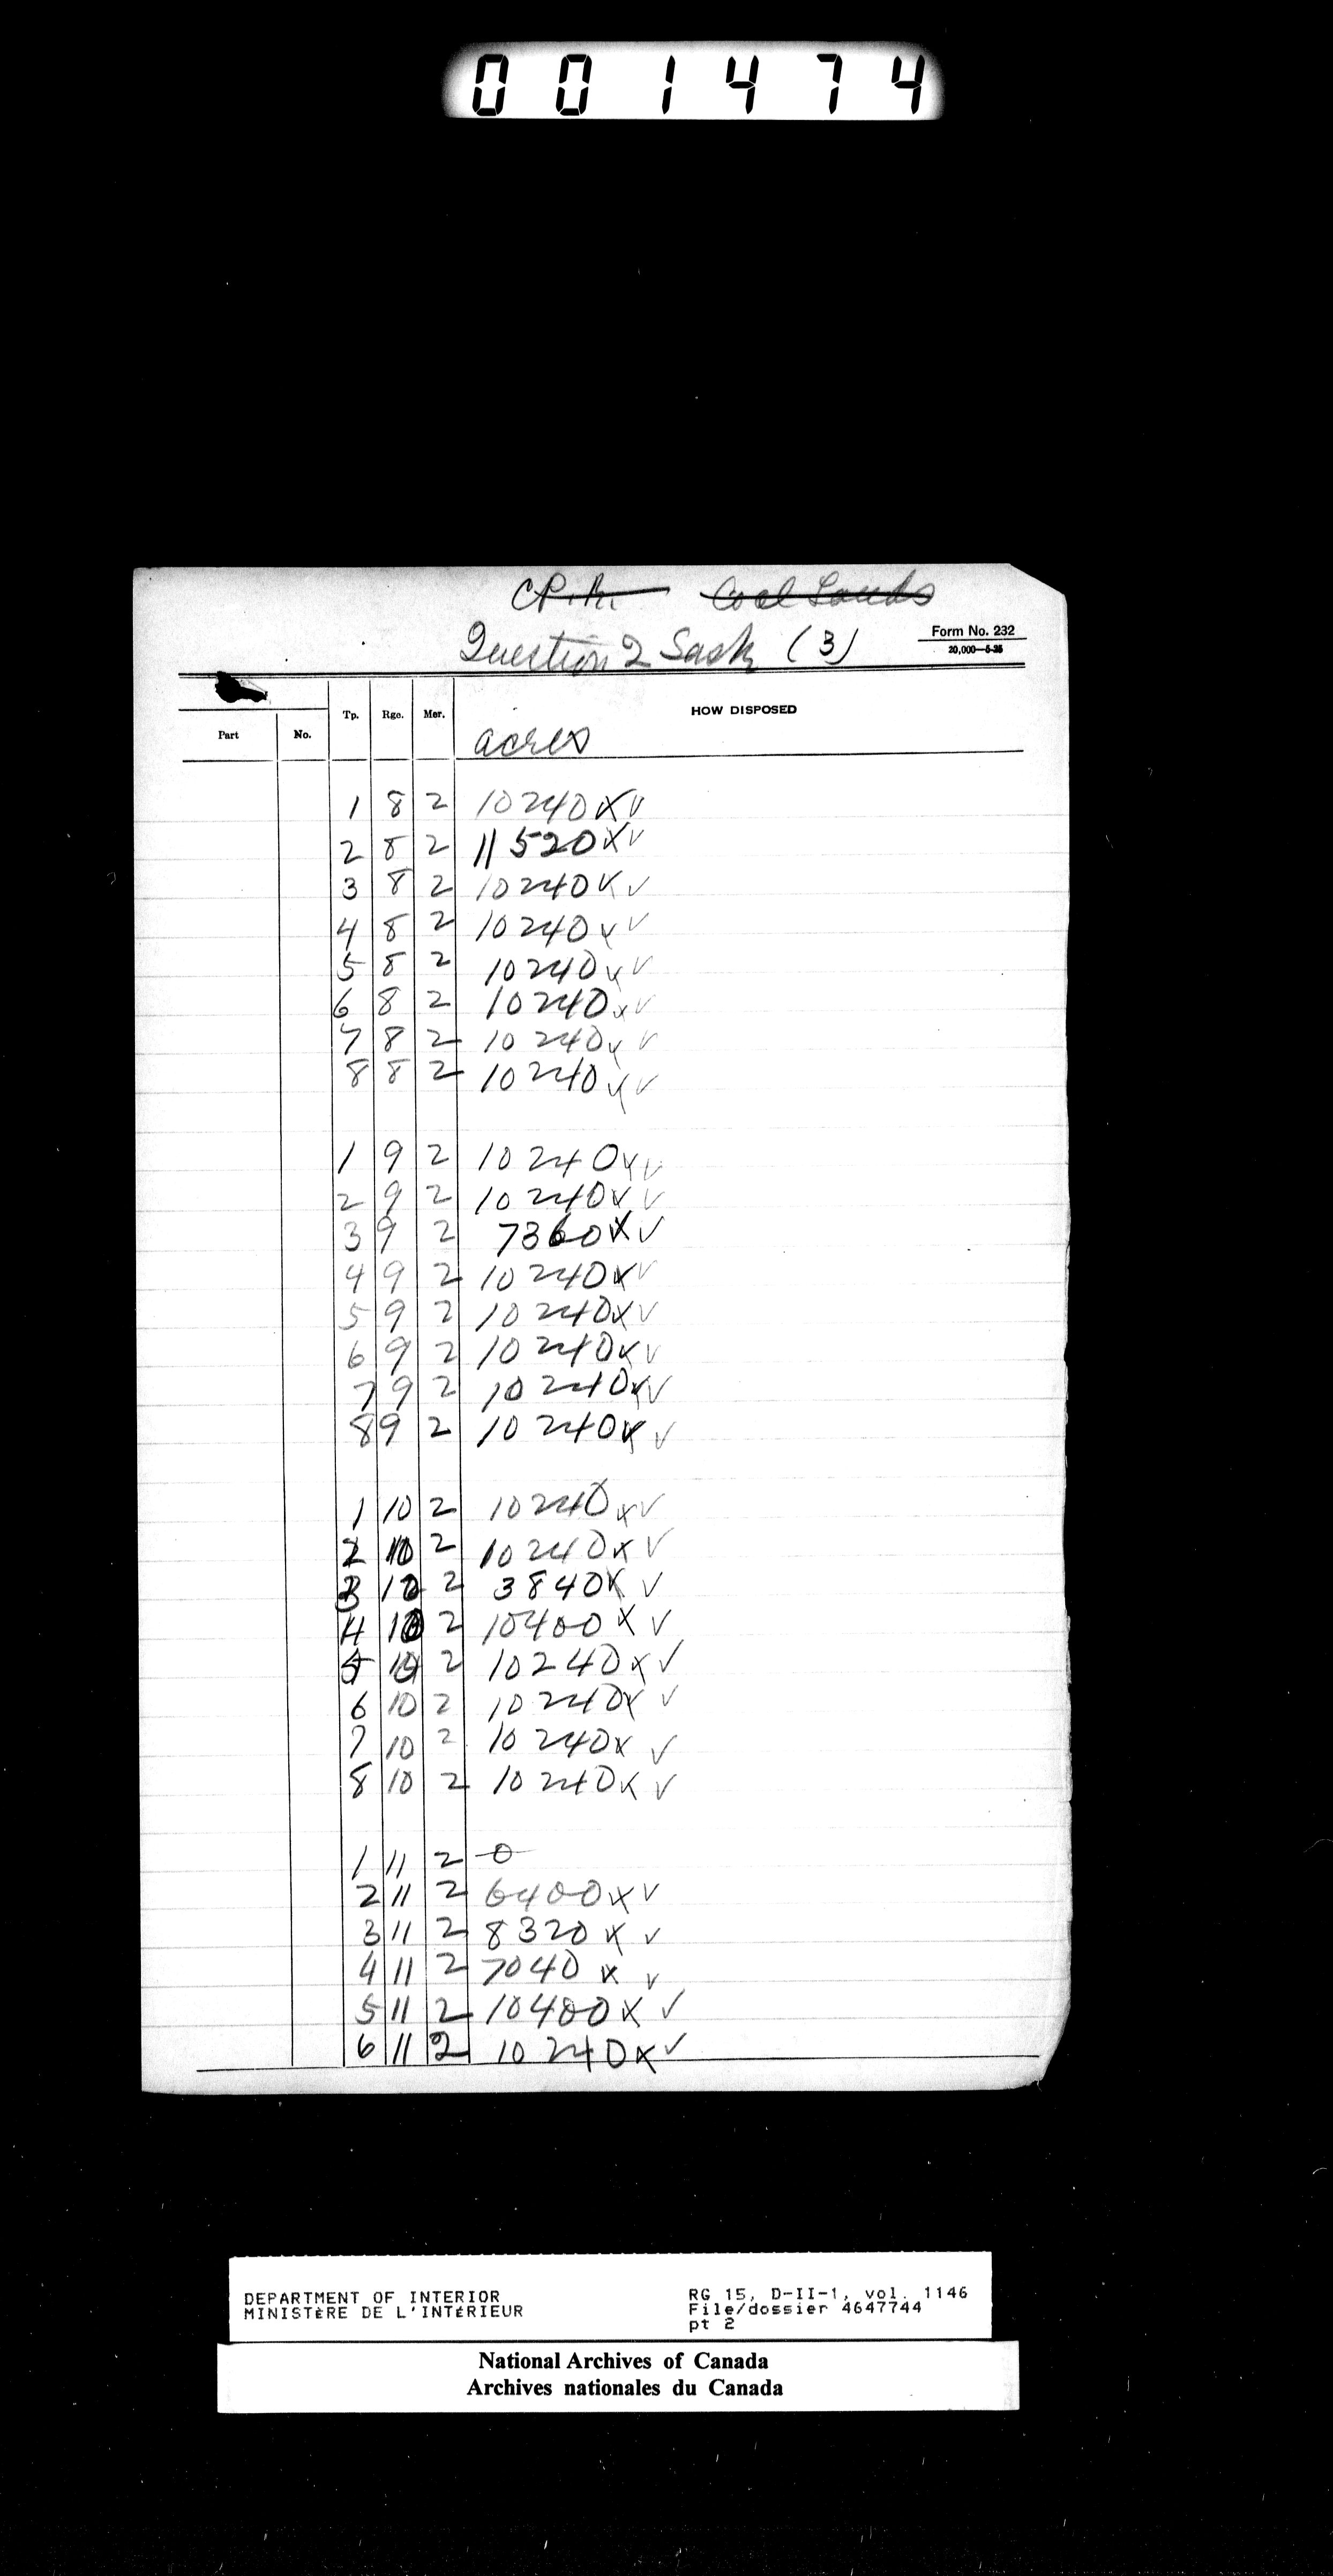 001474
CP.R. Coal Lands
Question 2 Sask (3)
Form No. 232
20,000—5-25
Part No. Tp. Rge. Mer. HOW DISPOSED
acres
1 8 2 10240 x ✓
2 8 2 11520 x ✓
3 8 2 10240 x ✓
4 8 2 10240 x ✓
5 8 2 10240 x ✓
6 8 2 10240 x ✓
7 8 2 10240 x ✓
8 8 2 10240 x ✓
1 9 2 10240 x ✓
2 9 2 10240 x ✓
3 9 2 7360 x ✓
4 9 2 10240 x ✓
5 9 2 10240 x ✓
6 9 2 10240 x ✓
7 9 2 10240 x ✓
8 9 2 10240 x ✓
1 10 2 10240 x ✓
2 10 2 10240 x ✓
3 10 2 3840 x ✓
4 10 2 10400 x ✓
5 10 2 10240 x ✓
6 10 2 10240 x ✓
7 10 2 10240 x ✓
8 10 2 10240 x ✓
1 11 2 0
2 11 2 6400 x ✓
3 11 2 8320 x ✓
4 11 2 7040 x ✓
5 11 2 10400 x ✓
6 11 2 10240 x ✓
DEPARTMENT OF INTERIOR
MINISTÈRE DE L'INTÉRIEUR
RG 15, D-II-1, vol. 1146
File/dossier 4647744
pt 2
National Archives of Canada
Archives nationales du Canada